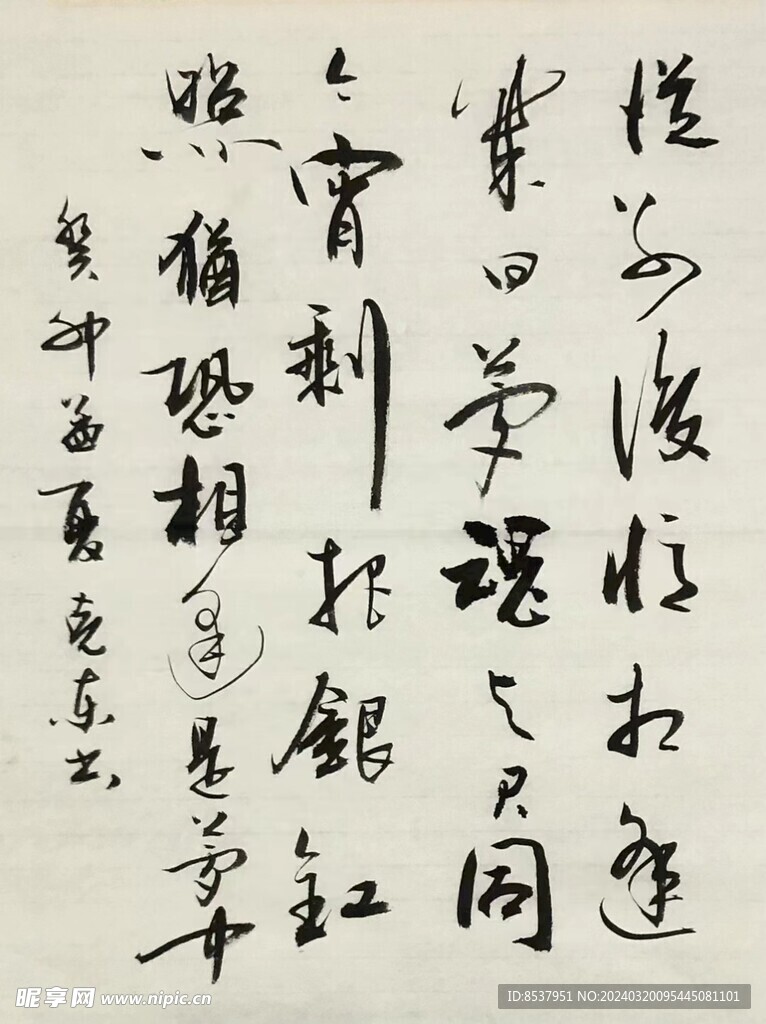 從別後憶相逢
幾回夢魂与君同
今宵剩把銀釭
照猶恐相逢是夢中
癸卯夏克东书
昵享网 www.nipic.cn
ID:8537951 NO:20240320095445081101